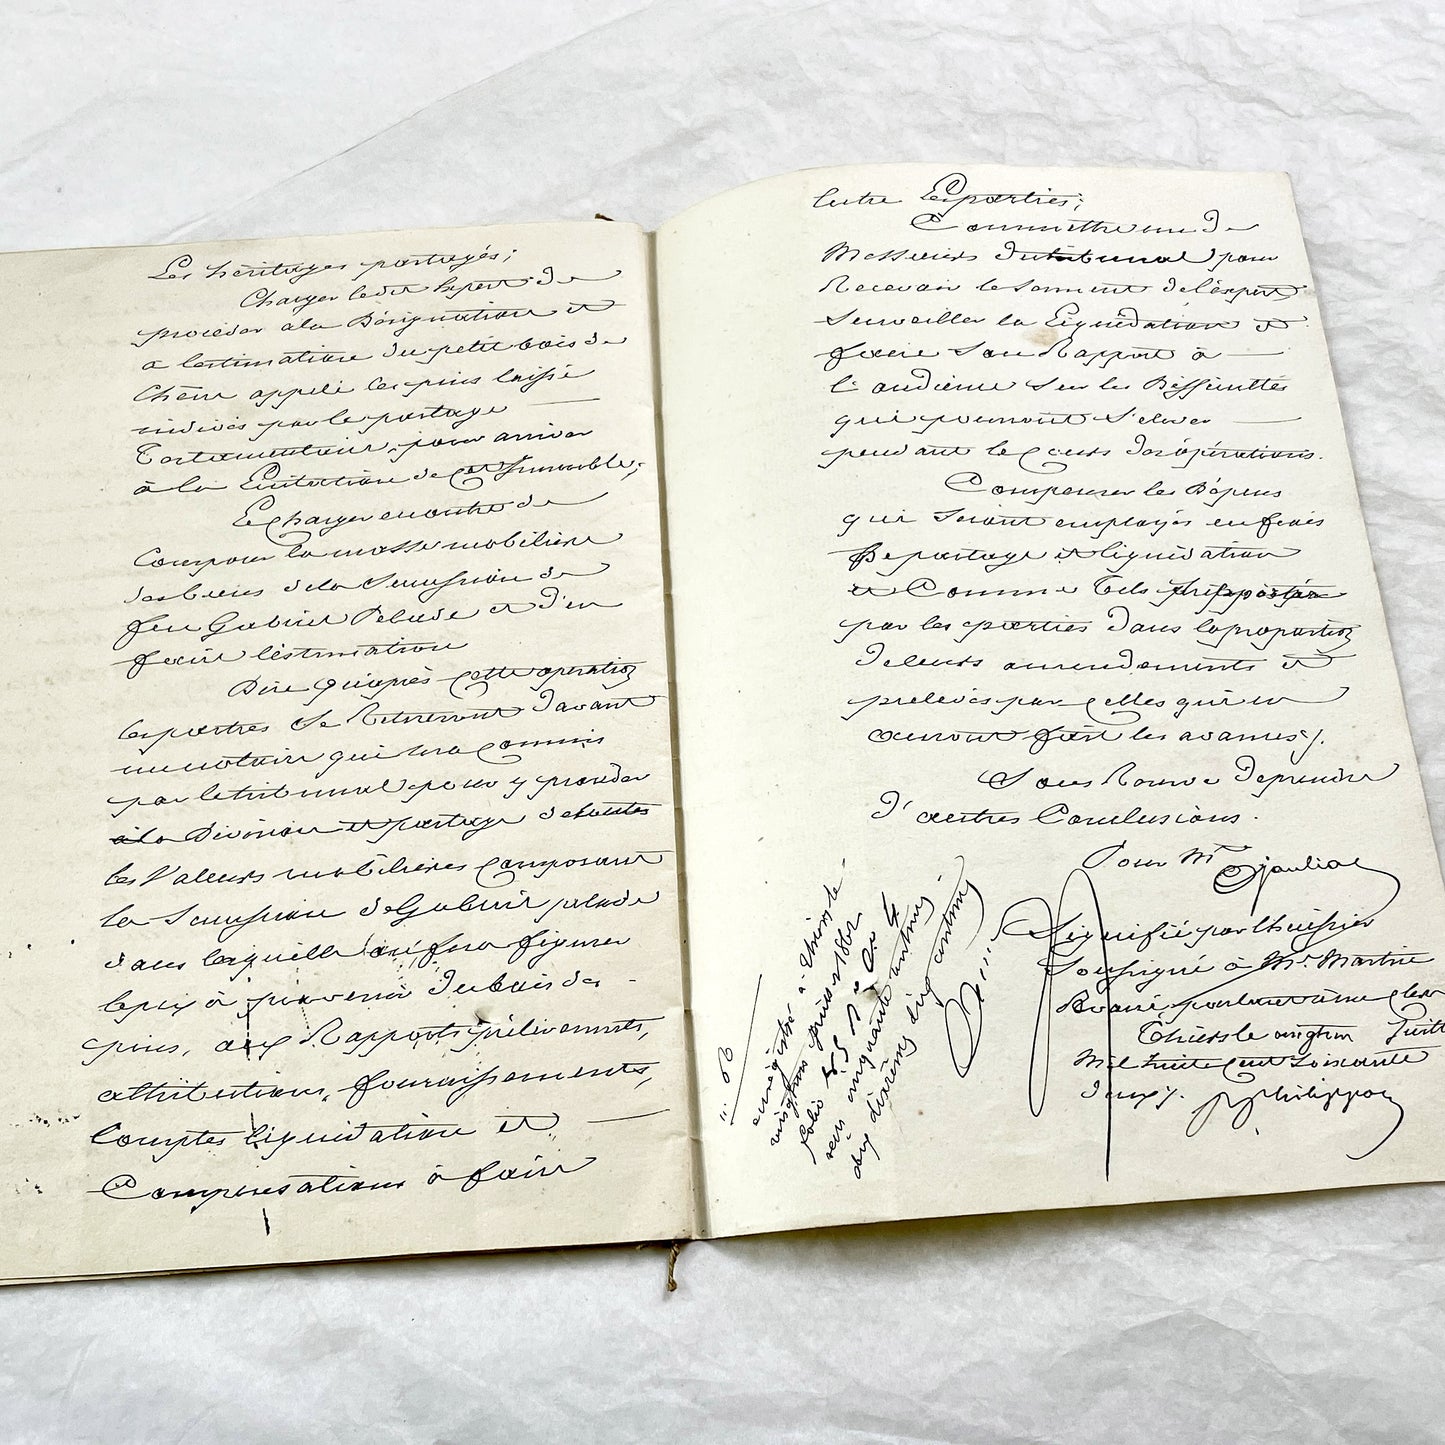 Les héritages partagés;
Charger ledit Expert de
procéder à la Désignation et
a lestimation du petit bois de
Chêne appelé les pins laissé
indivis par le partage
Testamentaire, pour arriver
à la Licitation de cet Immeuble;
Le charger en outre de
Composer la masse mobilière
des biens de la Succession de
feu Gabriel Pelade et d'en
faire l'éstimation
Dire qu'après cette opération
les parties se Retireront Devant
un notaire qui sera commis
par le tribunal pour y procéder
à la Division et partage de toutes
les Valeurs mobilières composant
la Succession de Gabriel pelade
dans laquelle on fera figurer
le prix à provenir du bois des
pins, aux Rapports, prélèvements,
attributions, fournissements,
Comptes liquidation et
Compensations à faire
Entre Les parties;
Commettre un De
Messieurs du tribunal pour
Recevoir le serment de l'expert
Surveiller la Liquidation et
faire Son Rapport à
l'audience Sur les Difficultés
qui pourront s'elever
pendant le Cours des opérations.
Compenser les Dépens
qui Seront employés en frais
De partage et liquidation
et Comme Tels supportés
par les parties Dans la proportion
De leurs amendements et
prelevés par celles qui en
auront fait les avances.
Sous Reserve De prendre
D'autres Conclusions.
Pour Me
Signifié par l'huissier
Soussigné à Me Martin
Avoué
Thiers le vingt un Juill
Mil huit cent soixante
Deux.
Philippon
enregistré à Thiers le
vingt un 1862
folio
reçu cinquante centimes
dix dixièmes cinq centimes